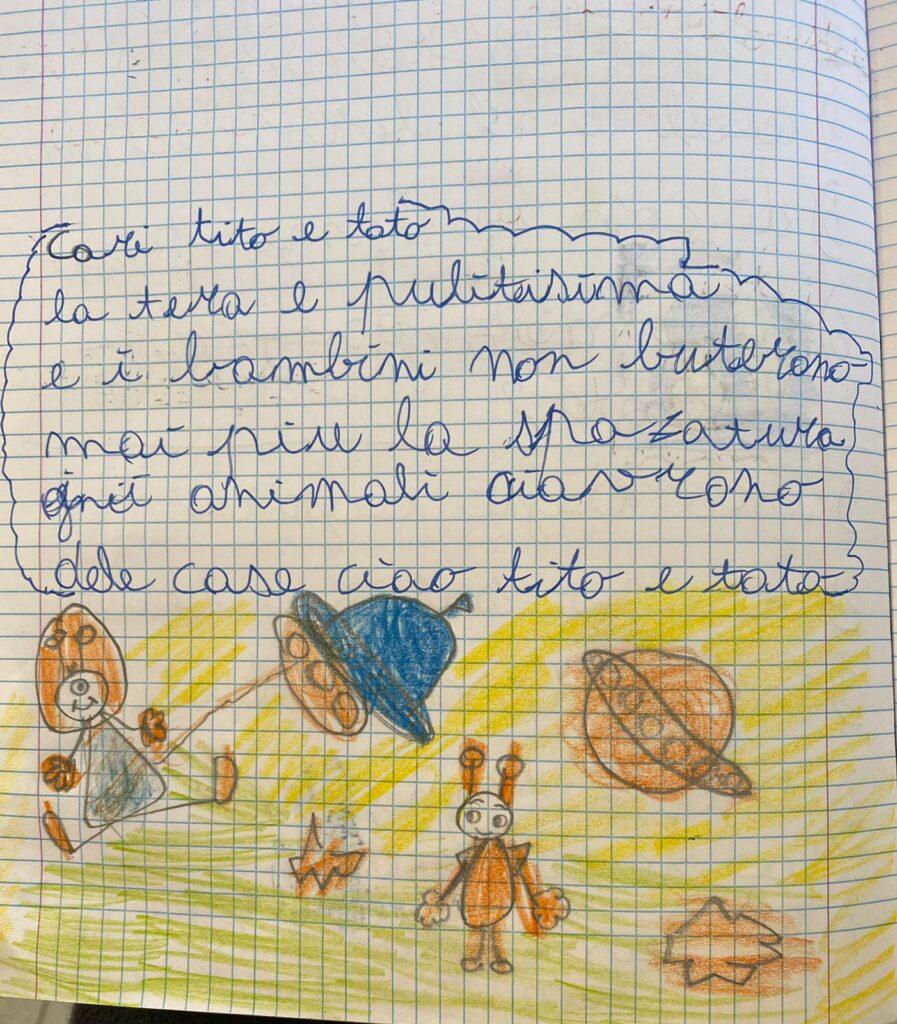 Cari tito e tato
la tera e pulitissima
e i bambini non buterono
mai piu la spazatura
gni animali ciavrono
dele case ciao tito e tato